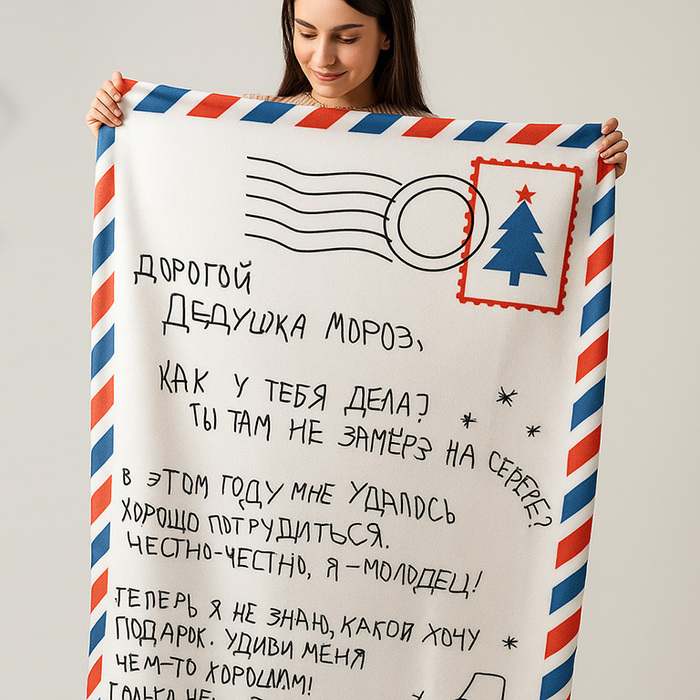 ДОРОГОЙ
ДЕДУШКА МОРОЗ,
КАК У ТЕБЯ ДЕЛА?
ТЫ ТАМ НЕ ЗАМЁРЗ НА СЕРЕРЕ?
В ЭТОМ ГОДУ МНЕ УДАЛОСЬ
ХОРОШО ПОТРУДИТЬСЯ.
ЧЕСТНО-ЧЕСТНО, Я – МОЛОДЕЦ!
ТЕПЕРЬ Я НЕ ЗНАЮ, КАКОЙ ХОЧУ
ПОДАРОК. УДИВИ МЕНЯ
ЧЕМ-ТО ХОРОШИМ!
ТОЛЬКО